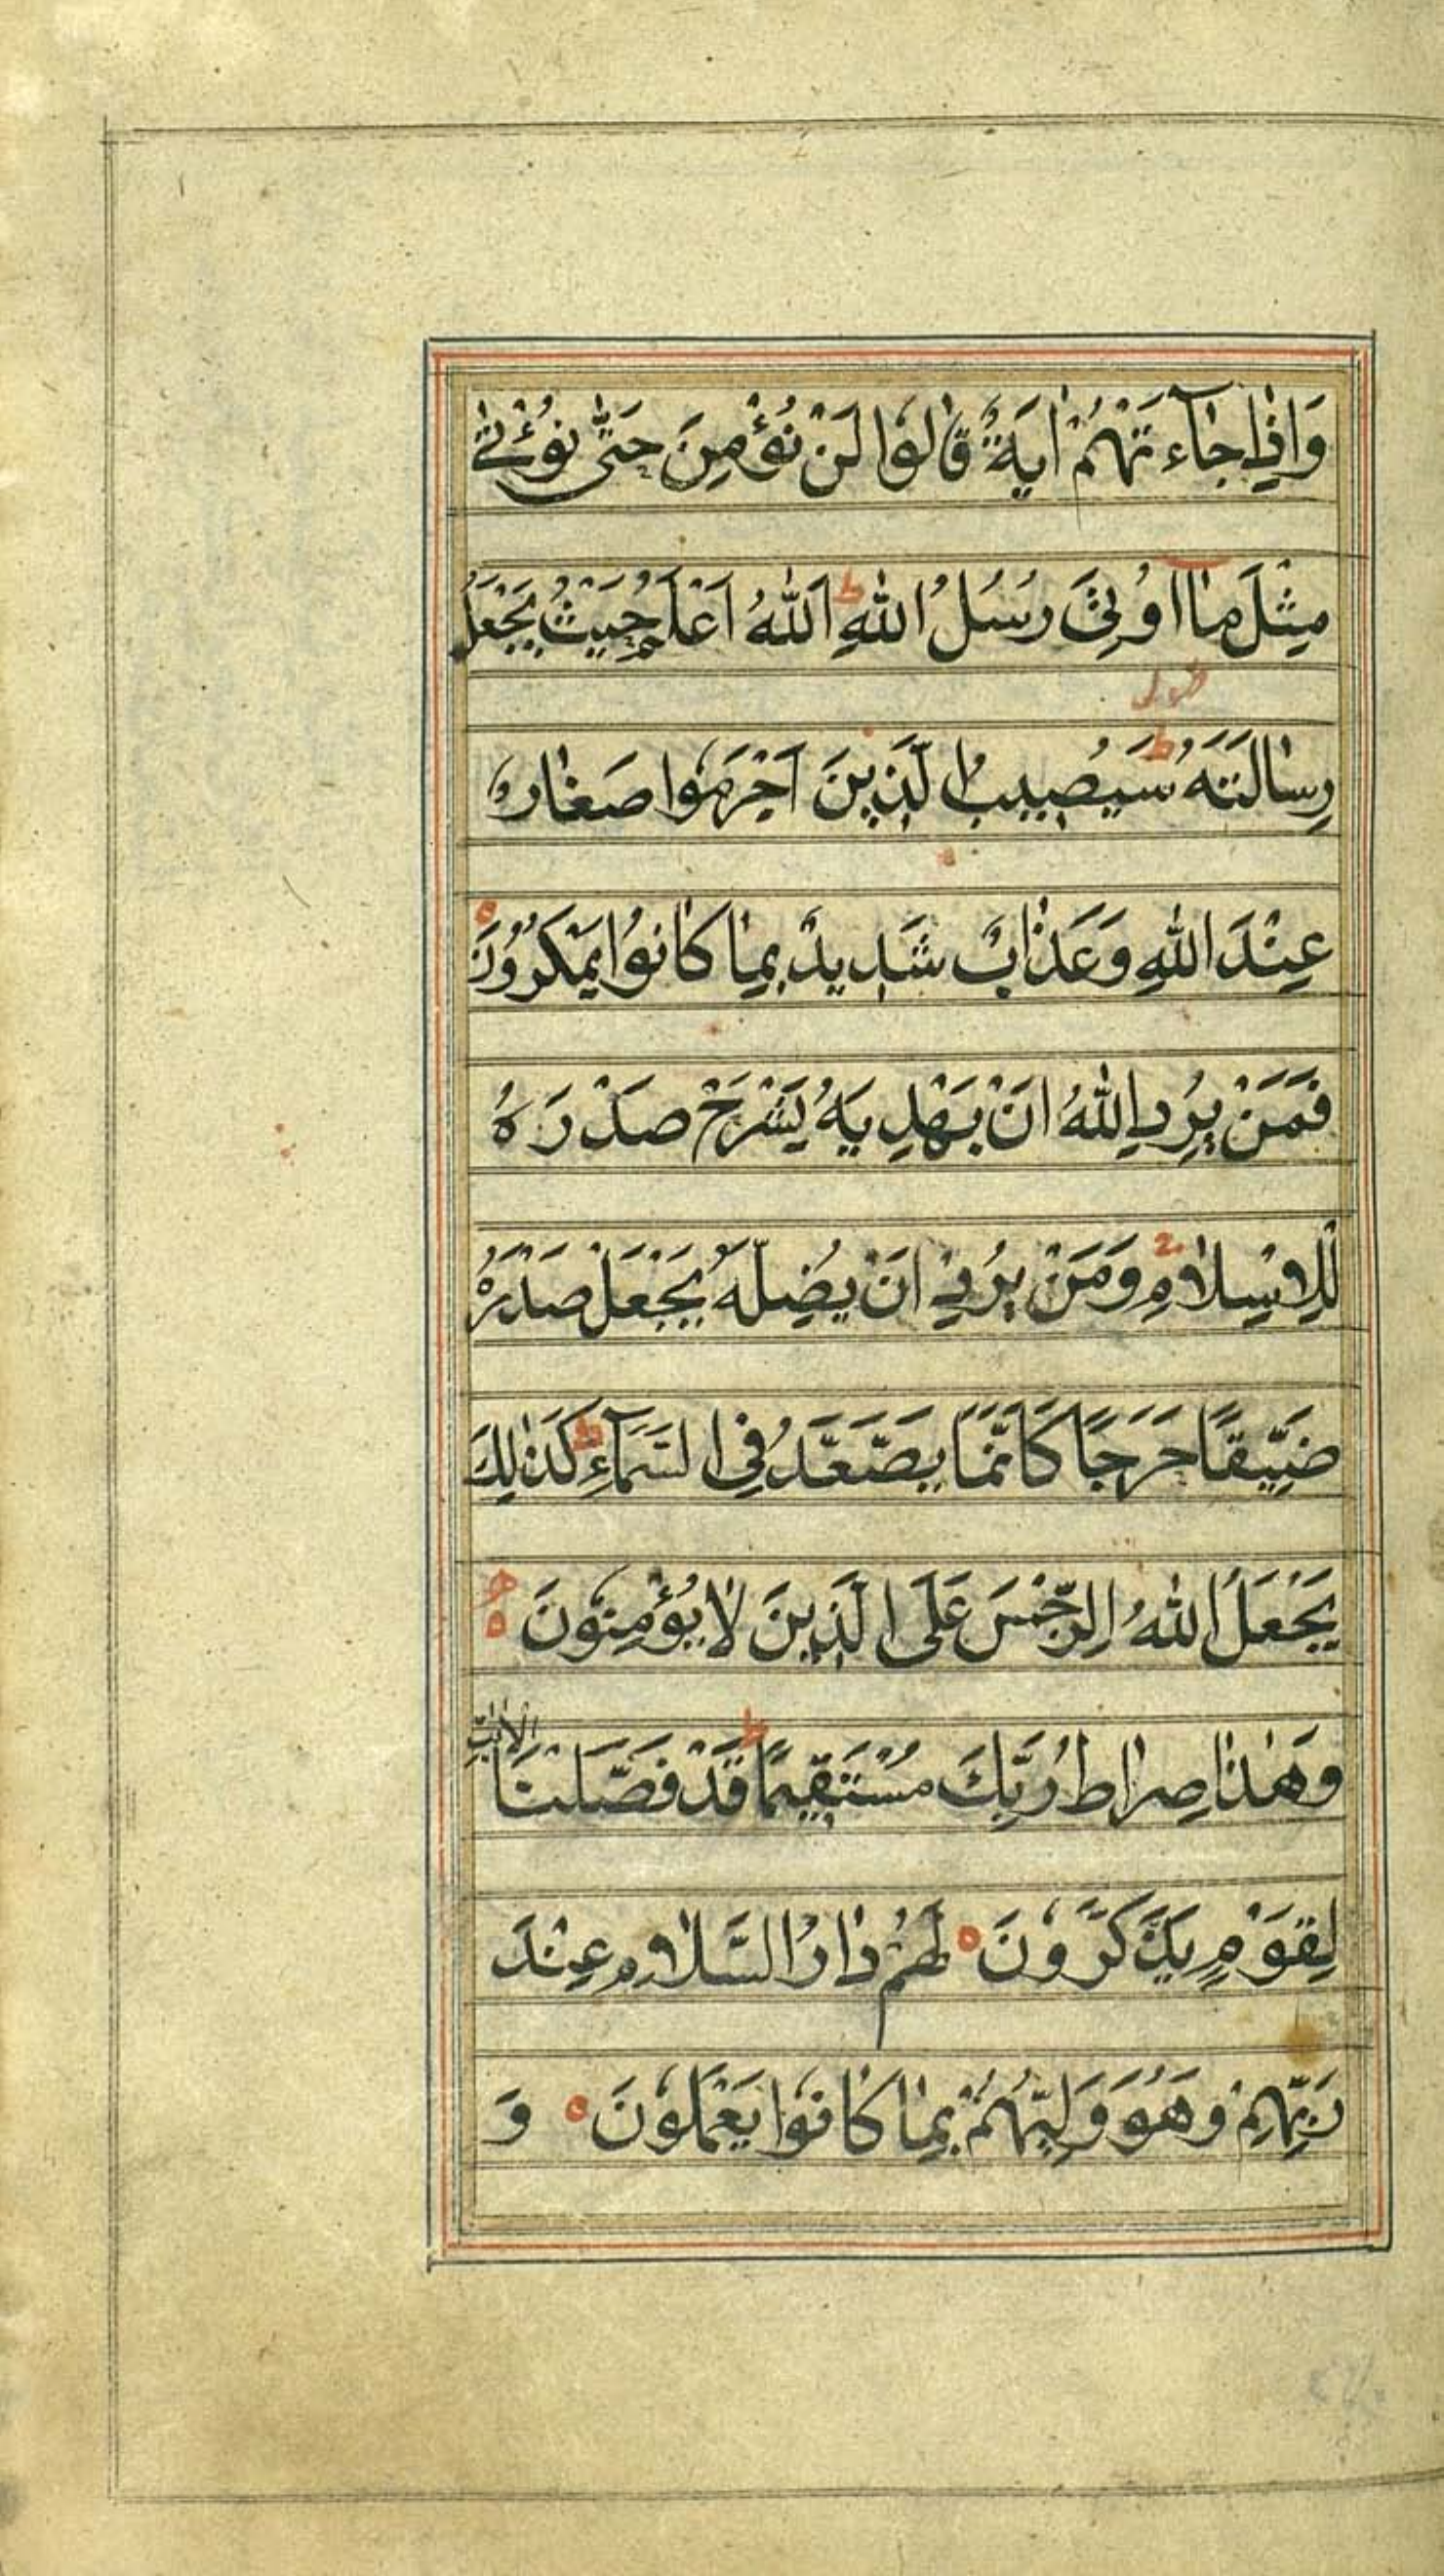 وَاِذٰا جٰٓاءَتْهُمْ اٰيَةٌ قٰالُوا لَنْ نُؤْمِنَ حَتّٰى نُؤْتٰى
مِثْلَ مٰٓا اُوتِىَ رُسُلُ اللّٰهِ ط اَللّٰهُ اَعْلَمُ حَيْثُ يَجْعَلُ
رِسٰالَتَهُ ط سَيُصِيبُ الَّذِينَ اَجْرَمُوا صَغٰارٌ
عِنْدَ اللّٰهِ وَعَذٰابٌ شَدِيدٌ بِمٰا كٰانُوا يَمْكُرُونَ ه
فَمَنْ يُرِدِ اللّٰهُ اَنْ يَهْدِيَهُ يَشْرَحْ صَدْرَهُ
لِلْاِسْلٰامِ وَمَنْ يُرِدْ اَنْ يُضِلَّهُ يَجْعَلْ صَدْرَهُ
ضَيِّقًا حَرَجًا كَاَنَّمٰا يَصَّعَّدُ فِى السَّمٰٓاءِ ط كَذٰلِكَ
يَجْعَلُ اللّٰهُ الرِّجْسَ عَلَى الَّذِينَ لٰا يُؤْمِنُونَ ه
وَهٰذٰا صِرٰاطُ رَبِّكَ مُسْتَقِيمًا ط قَدْ فَصَّلْنَا الْاٰيٰاتِ
لِقَوْمٍ يَذَّكَّرُونَ ه لَهُمْ دٰارُ السَّلٰامِ عِنْدَ
رَبِّهِمْ وَهُوَ وَلِيُّهُمْ بِمٰا كٰانُوا يَعْمَلُونَ ه وَ